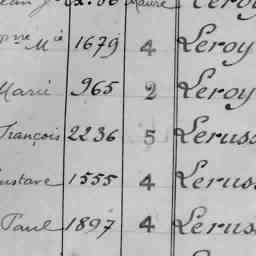 Maurice Leroy
pne Mie 1679 4 Leroy
Marie 965 2 Leroy
François 2236 5 Leruss
ustave 1555 4 Leruss
Paul 1897 4 Leruss